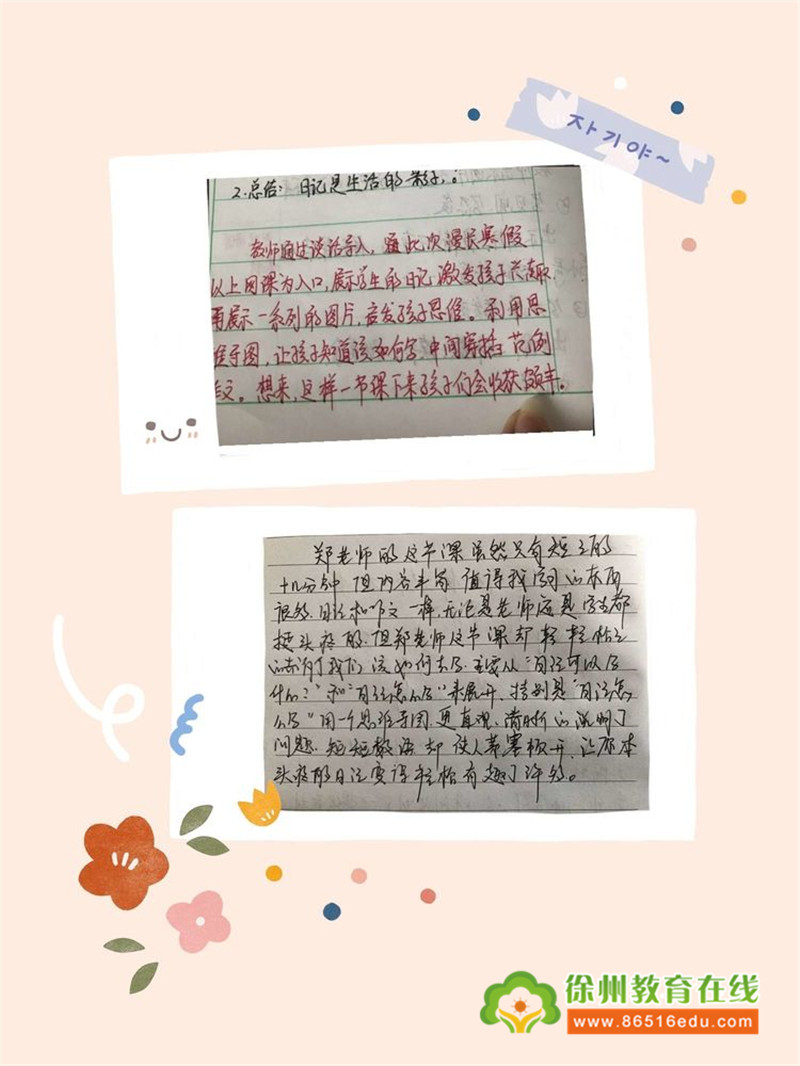 자기야~
2.总结：日记是生活的影子。
教师通过谈话导入，虽此次漫长寒假
以上网课为入口，展示学生的日记激发孩子兴趣
再展示一系列的图片，启发孩子思维。利用思
维导图，让孩子知道该如何写，中间穿插范例
作文。想来，这样一节课下来孩子们会收获颇丰。
郑老师的这节课虽然只有短短的
十几分钟但内容丰富值得我学习的东西
很多。日记和作文一样，无论是老师还是学生都
挺头疼的，但郑老师这节课却轻轻松松
的告诉了我们该如何去写。主要从“日记可以写
什么？”和“日记怎么写”来展开，特别是“日记怎
么写”用一个思维导图，更直观、清晰的说明了
问题。短短数语却使人茅塞顿开，让原本
头疼的日记变得轻松有趣了许多。
徐州教育在线
www.86516edu.com